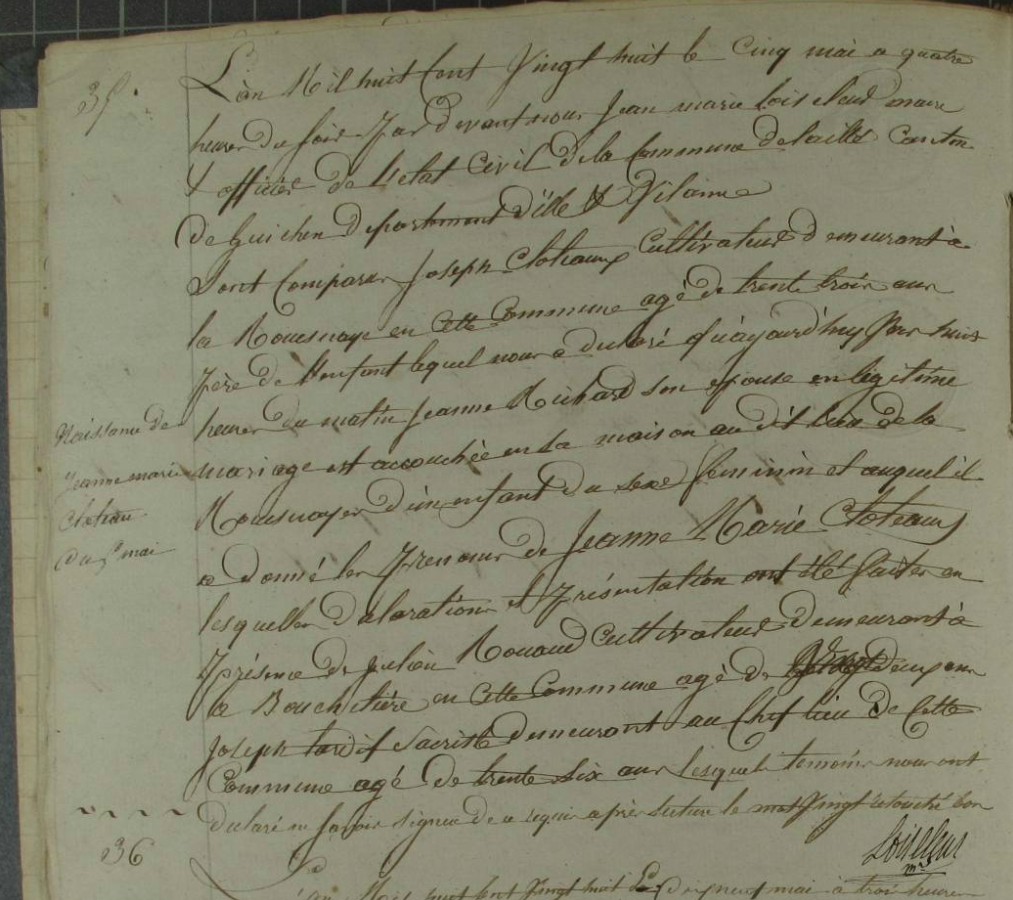 35.
L'an Mil huit Cent Vingt huit le Cinq mai a quatre
heures du soir Par devant nous Jean marie Loiseleur maire
& officier de L'etat Civil de la Commune de laillé Canton
de Guichen Departement d'ille & Vilanne
Sont Comparus Joseph Cloteaux Cultivateur demeurant à
la Rouesnaye en Cette Commune agé de trente trois ans
Père de L'enfant lequel nous a declaré qu'aujourd'huy Sur huit
heures du matin Jeanne Richard son epouse en legitime
Naissance de
mariage est accouchée en sa maison au dit lieu de la
Jeanne marie
Cloteau
du 5 mai
Rouesnayes d'un enfant du sexe feminin et auquel il
a donné les Prenoms de Jeanne Marie Cloteaux
lesquelles declarations et Présentation ont été faites en
Présence de Julien Rouaud Cultivateur demeurant à
la Bouchetière en Cette Commune agé de Vingt deux ans
Joseph tardif Sacriste demeurant au Chef lieu de Cette
Commune agé de trente Six ans lesquels temoins nous ont
declaré ne savoir signer de ce requis après lecture le mot Vingt retouché bon
Loiseleur
mre
36
L'an Mil huit Cent Vingt huit Le dix neuf mai à trois heures